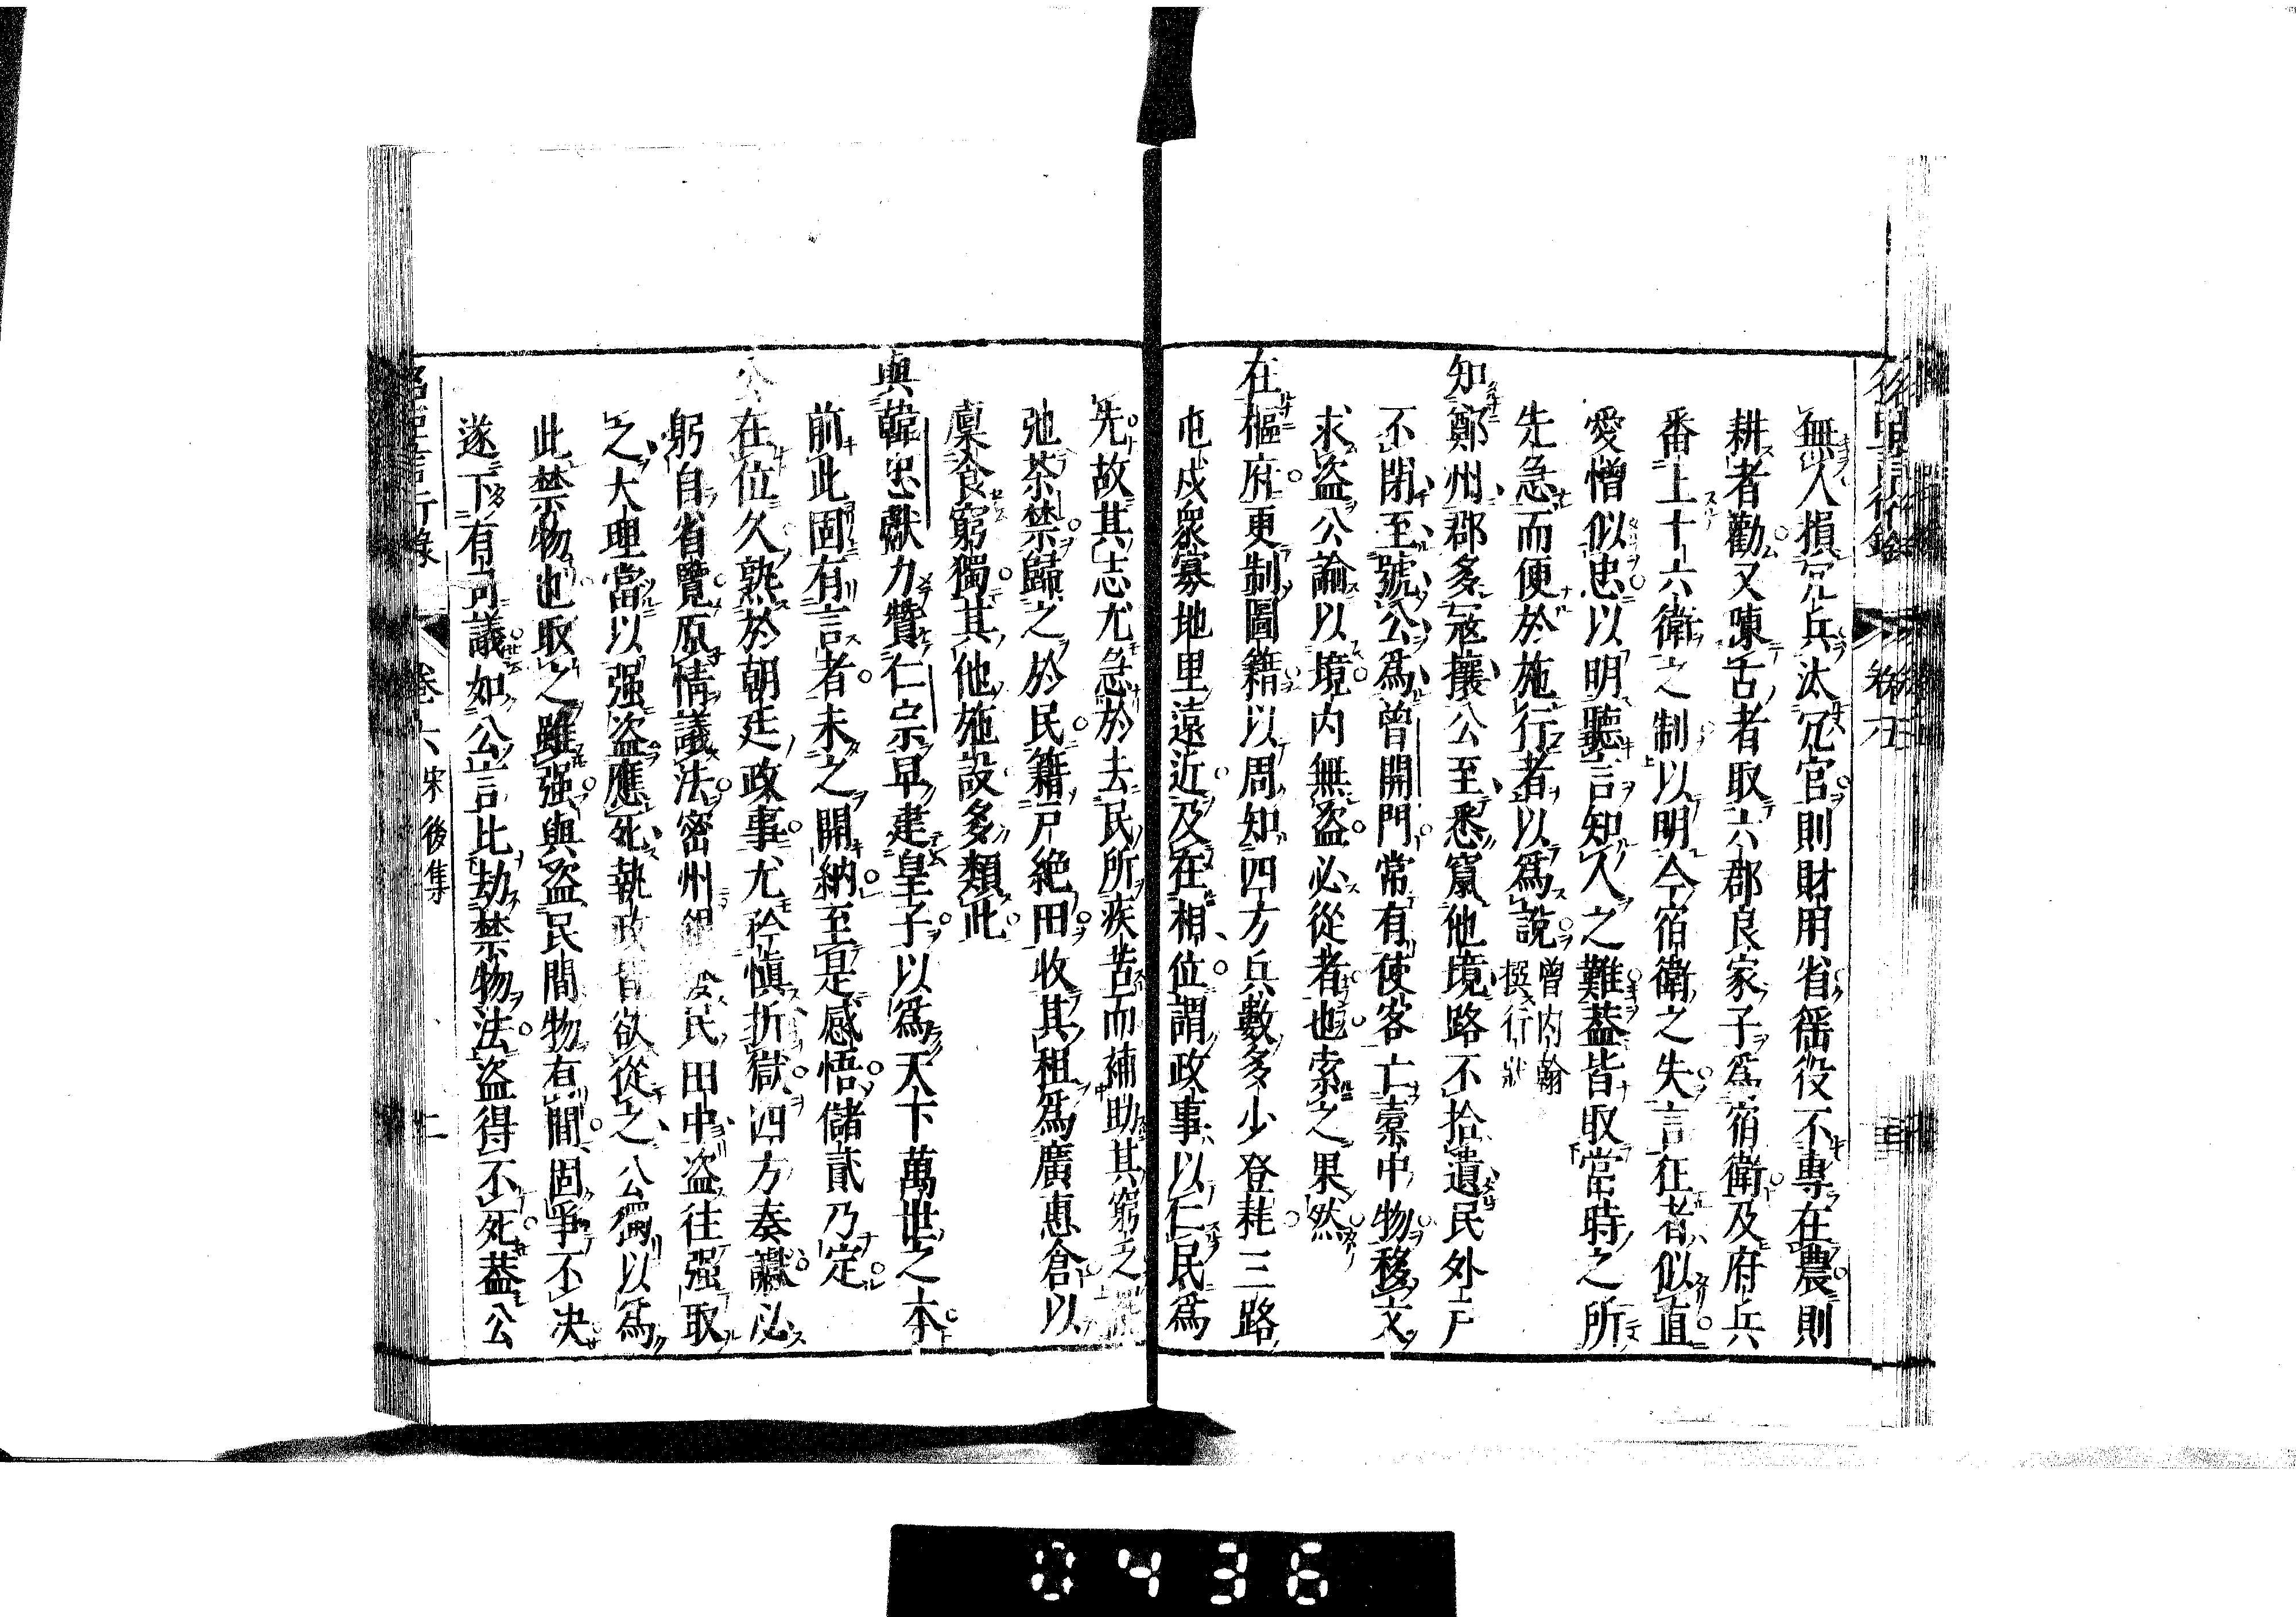 無人損冗兵汰冗官則財用省徭役不專在農則
耕者勸又陳古者取六郡良家子爲宿衛及府兵
番上十六衛之制以明今宿衛之失言征者似直
愛憎似忠以明聽言知人之難蓋皆取當時之所
先急而便於施行者以爲說 曾内翰撰行狀
知鄭州郡多冦攘公至悉竄他境路不拾遺民外戸
不閉至號公爲曾開門常有使客亡橐中物移文
求盜公諭以境内無盜必從者也索之果然
在樞府更制圖籍以周知四方兵數多少登耗三路
屯戍衆寡地里遠近及在相位謂政事以仁民爲
先故其志尤急於去民所疾苦而補助其窮乏
弛茶禁歸之於民籍戸絶田收其租爲廣惠倉以
廩食窮獨其他施設多類此
與韓忠獻力贊仁宗早建皇子以爲天下萬世之本
前此固有言者未之開納至是感悟儲貳乃定
公在位久熟於朝廷政事尤矜愼折獄四方奏讞必
躬自省覽原情議法密州銀發民田中盜往强取
之大理當以强盜應死執政皆欲從之公獨以爲
此禁物也取之雖强與盜民間物有間固爭不决
遂下有司議如公言比劫禁物法盜得不死蓋公
卷六 宋後集 二
0436